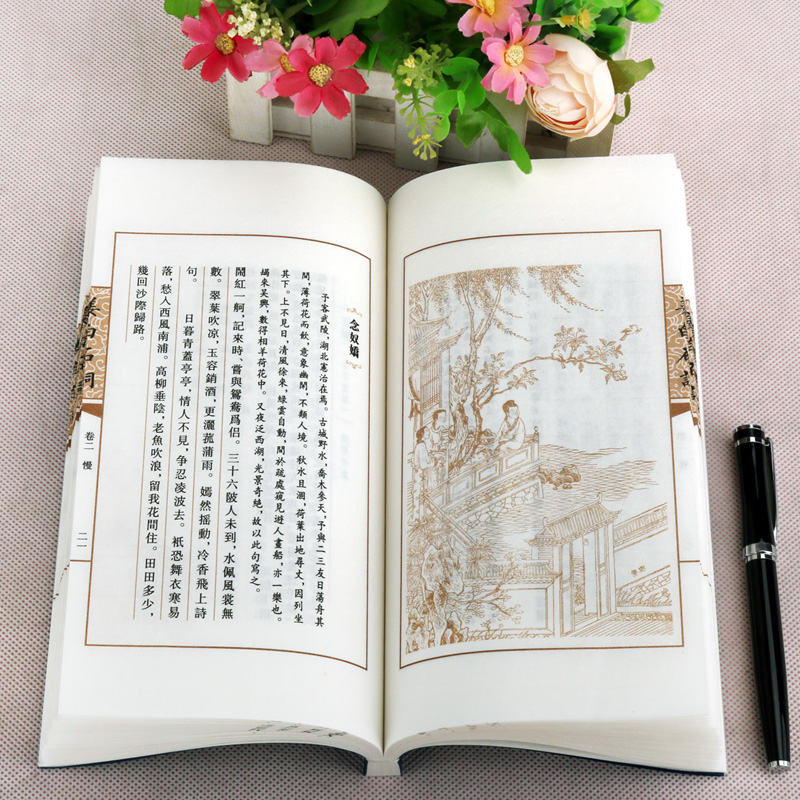 念奴嬌
予客武陵，湖北憲治在焉。古城野水，喬木參天，予與二三友日蕩舟其
間，薄荷花而飲，意象幽閒，不類人境。秋水且涸，荷葉出地尋丈，因列坐
其下。上不見日，清風徐來，綠雲自動，間於疏處窺見遊人畫船，亦一樂也。
朅來吳興，數得相羊荷花中。又夜泛西湖，光景奇絕，故以此句寫之。
鬧紅一舸，記來時、嘗與鴛鴦爲侶。三十六陂人未到，水佩風裳無
數。翠葉吹凉，玉容銷酒，更灑菰蒲雨。嫣然摇動，冷香飛上詩
句。　日暮青蓋亭亭，情人不見，争忍凌波去。衹恐舞衣寒易
落，愁入西風南浦。高柳垂陰，老魚吹浪，留我花間住。田田多少，
幾回沙際歸路。
姜白石詞
卷二　慢
二一